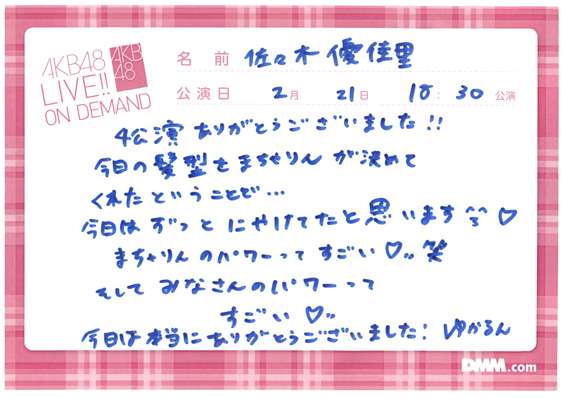 AKB48
LIVE!!
ON DEMAND
AKB
48
名前 佐々木優佳里
公演日 2月 21日 18:30公演
4公演ありがとうございました!!
今日の髪型をまちゃりんが決めて
くれたということで…
今日はずっとにやけてたと思います♡
まちゃりんのパワーってすごい♡笑
そしてみなさんのパワーって
すごい♡
今日は本当にありがとうございました! ゆかるん
DMM.com